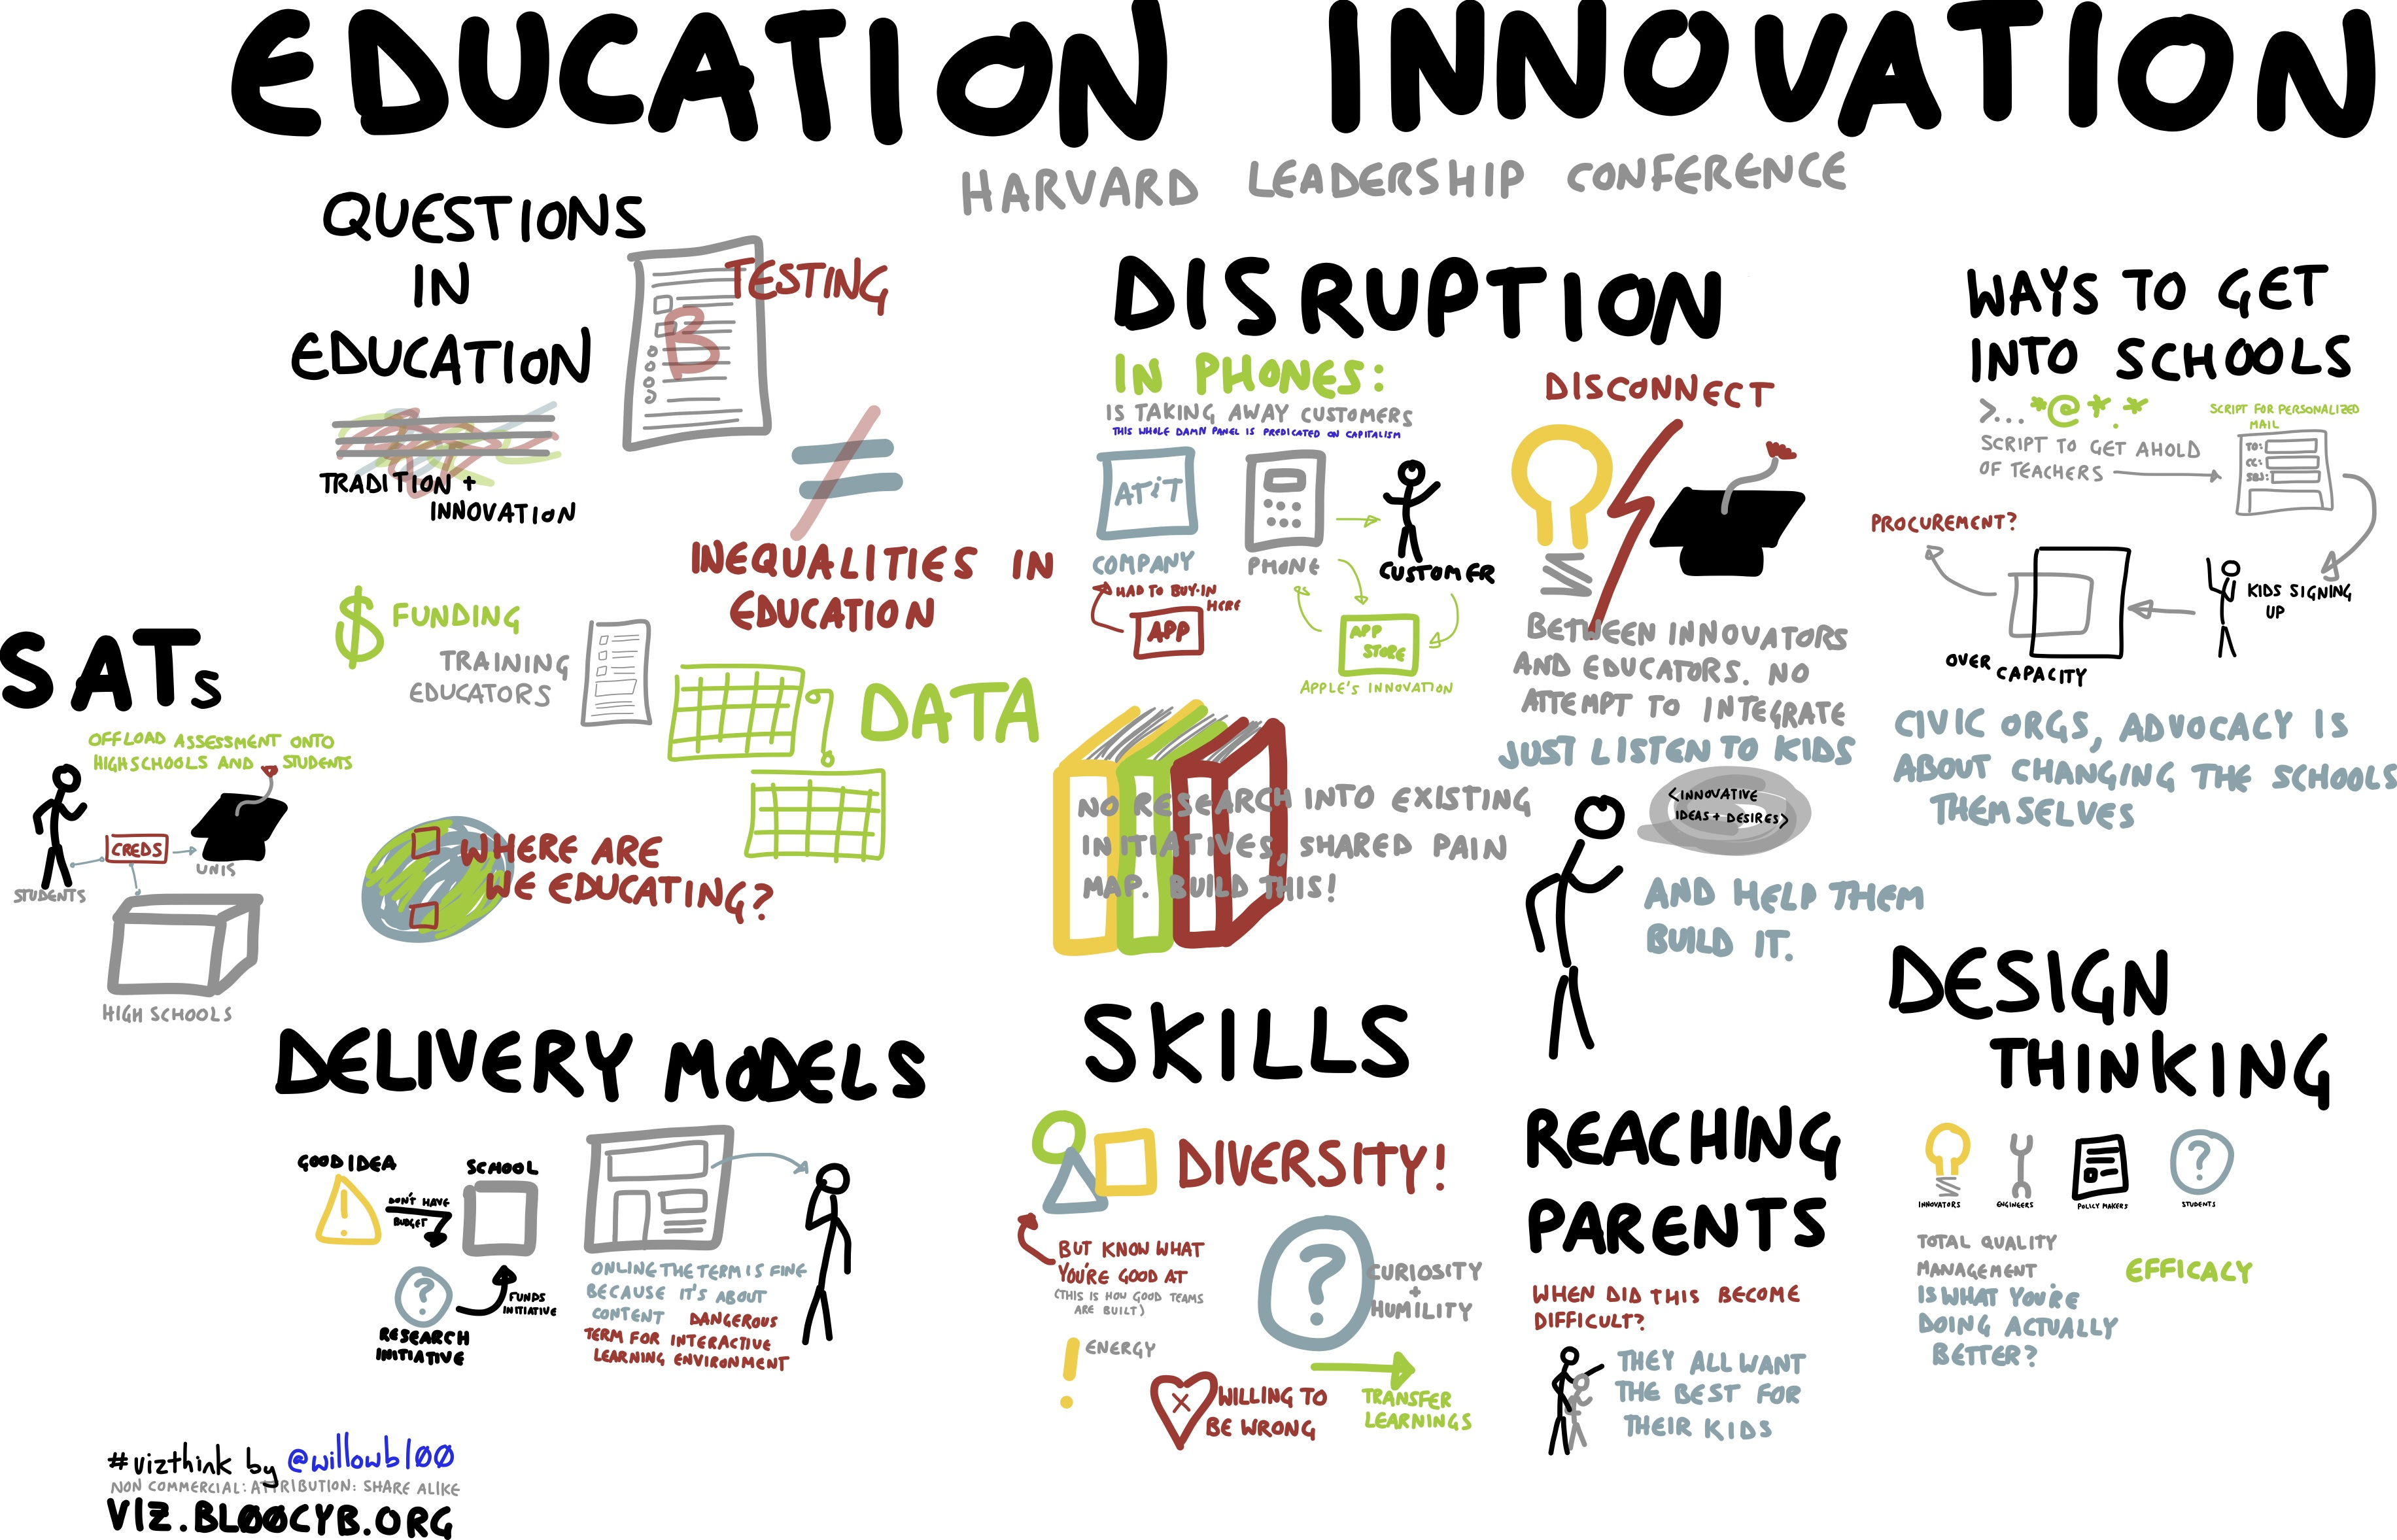 EDUCATION INNOVATION
HARVARD LEADERSHIP CONFERENCE
QUESTIONS
IN
EDUCATION
TRADITION +
INNOVATION
B
TESTING
INEQUALITIES IN
EDUCATION
$ FUNDING
TRAINING
EDUCATORS
DATA
WHERE ARE
WE EDUCATING?
SATs
OFFLOAD ASSESSMENT ONTO
HIGHSCHOOLS AND STUDENTS
CREDS
UNIS
STUDENTS
HIGH SCHOOLS
DISRUPTION
IN PHONES:
IS TAKING AWAY CUSTOMERS
THIS WHOLE DAMN PANEL IS PREDICATED ON CAPITALISM
AT&T
COMPANY
PHONE
CUSTOMER
HAD TO BUY-IN
HERE
APP
APP
STORE
APPLE'S INNOVATION
NO RESEARCH INTO EXISTING
INITIATIVES, SHARED PAIN
MAP. BUILD THIS!
DISCONNECT
BETWEEN INNOVATORS
AND EDUCATORS. NO
ATTEMPT TO INTEGRATE
JUST LISTEN TO KIDS
<INNOVATIVE
IDEAS + DESIRES>
AND HELP THEM
BUILD IT.
WAYS TO GET
INTO SCHOOLS
>... *@*.*
SCRIPT TO GET AHOLD
OF TEACHERS
SCRIPT FOR PERSONALIZED
MAIL
TO:
CC:
SBJ:
KIDS SIGNING
UP
PROCUREMENT?
OVER CAPACITY
CIVIC ORGS, ADVOCACY IS
ABOUT CHANGING THE SCHOOLS
THEMSELVES
DELIVERY MODELS
GOOD IDEA
!
DON'T HAVE
BUDGET
SCHOOL
?
FUNDS
INITIATIVE
RESEARCH
INITIATIVE
ONLINE THE TERM IS FINE
BECAUSE IT'S ABOUT
CONTENT DANGEROUS
TERM FOR INTERACTIVE
LEARNING ENVIRONMENT
SKILLS
DIVERSITY!
BUT KNOW WHAT
YOU'RE GOOD AT
(THIS IS HOW GOOD TEAMS
ARE BUILT)
?
CURIOSITY
+
HUMILITY
! ENERGY
X
WILLING TO
BE WRONG
TRANSFER
LEARNINGS
REACHING
PARENTS
WHEN DID THIS BECOME
DIFFICULT?
THEY ALL WANT
THE BEST FOR
THEIR KIDS
DESIGN
THINKING
?
INNOVATORS
ENGINEERS
POLICY MAKERS
STUDENTS
TOTAL QUALITY
MANAGEMENT
IS WHAT YOU'RE
DOING ACTUALLY
BETTER?
EFFICACY
#vizthink by @willowbl00
NON COMMERCIAL: ATTRIBUTION: SHARE ALIKE
VIZ.BL00CYB.ORG